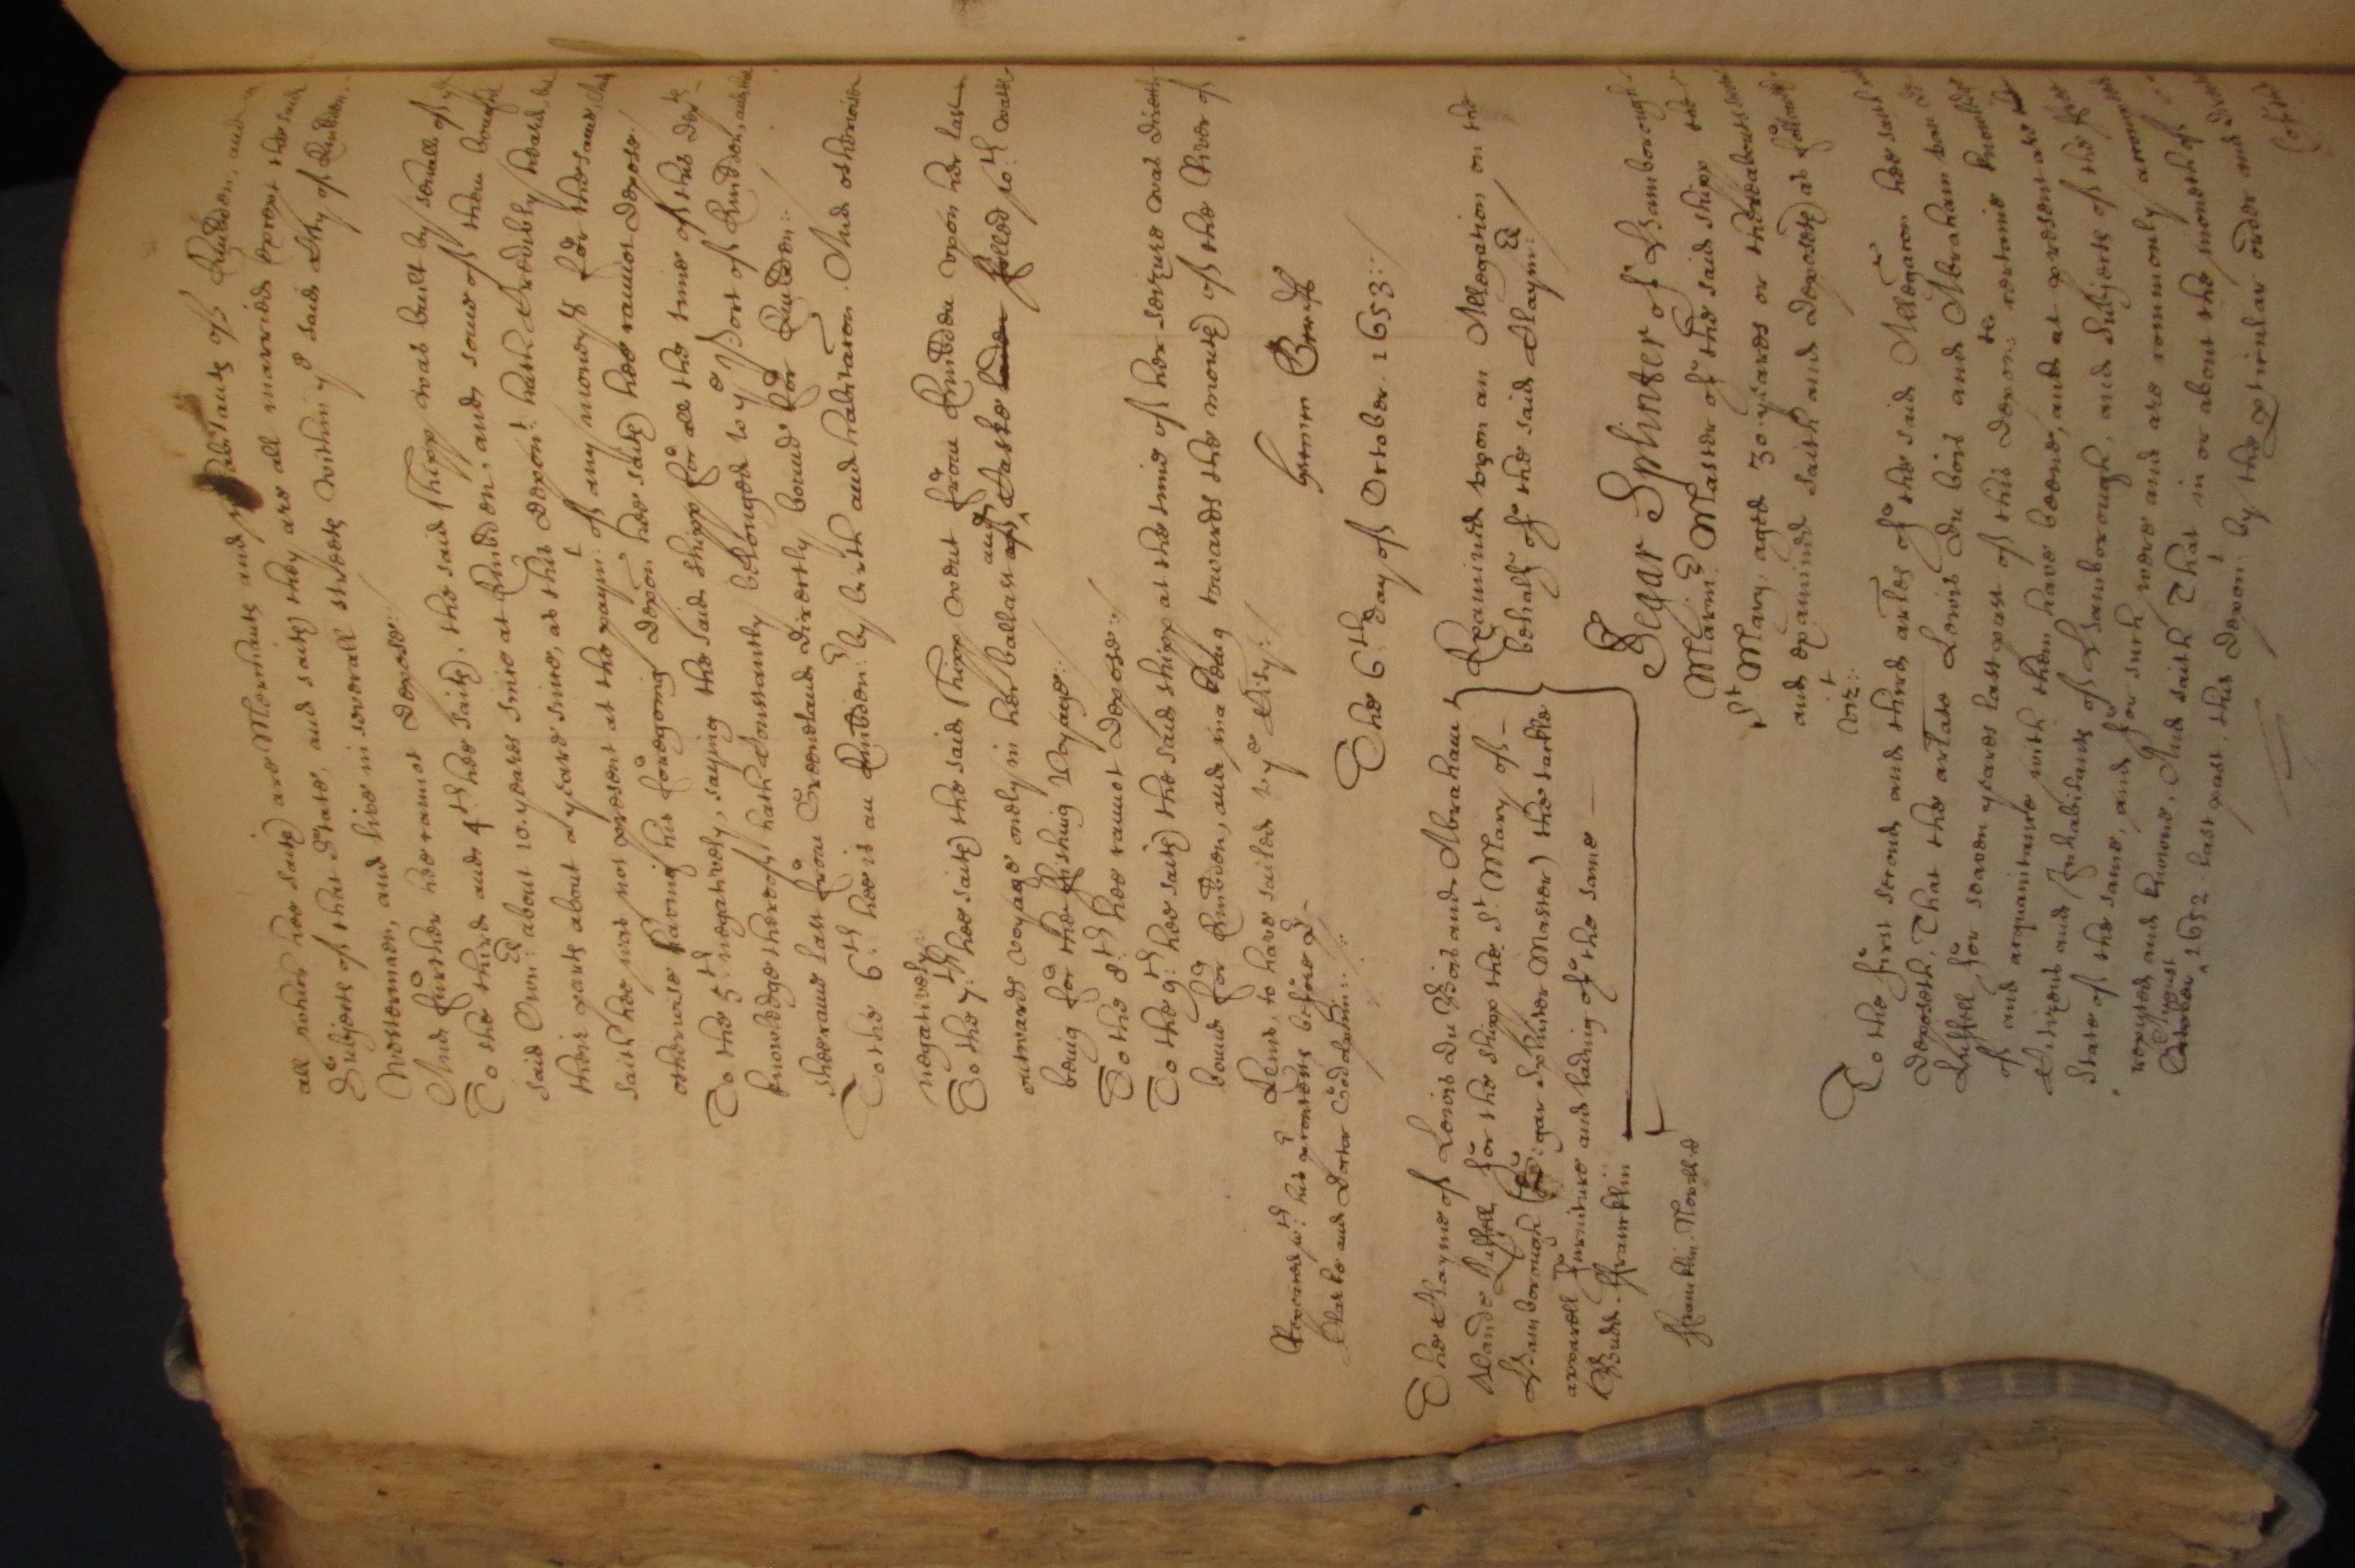 all which hee saith are Merchants and Inhabitants of Embden, and
Subjects of that State, and saith they are all married except the said
Westerman, and live in severall streets within ye said City of Embden.
And further hee cannot depose:
To the third and 4th hee saith, the said shipp was built by severall of ye
said Own:rs about 10. yeares since at Embden, and some of them bought
their parts about a yeare since, as this depon:t hath credibly heard, but
saith hee was not present at the paym:t of any moneys for the same, And
otherwise saving his foregoing depon hee saith hee cannot depose.
To the 5th negatively, saying the said shipp for all the time of this dep:ts
knowledge thereof hath constantly belonged to ye Port of Embden, and
shee came last from Greenland directly bound for Embden:
To the 6th: hee is an Embden:r by birth and habitation. And otherwise
negatively:
To the 7th: hee saith the said shipp went from Embden upon her last
outwards voyage onely in her ballast and Caske filled wth water
being for the fishing voyage:
To the 8th: hee cannot depose:
To the 9th: hee saith the said shipp at the time of her seizure was directly
bound for Embden, and in a way towards the mouth of the River of
Eems, to have sailed to ye City:
Repeated wth: his precedent before Dr
Clarke and Doctor Godolphin:
Harmen Berents
The 6th day of October 1653:
The Clayme of Lewis Du Bois and Abraham
van de Luffell for the shipp the St Mary of
Hamborough (Segar Sphinter Master) the tackle
apparell furniture and lading of the same
Budd. Francklin
Examined upon an Allegation on the
behalf of the said Claym:rs
Francklin. Nevill.
Segar Sphinter of Hamborough
Marin:r Master of the said shipp the
St Mary, aged 30. yeares or thereabouts sworne
and examined saith and deposeth as followeth
vizt:
To the first second and third artles of the said Allegaon hee saith and
deposeth, That the artlate Lewis Du bois and Abraham van de
Luffell for seaven yeares last past of this depon:ts certaine knowledge
of and acquaintance with them have beene, and at present are
Citizens and Inhabitants of Hamborough, and Subjects of the free
State of the same, and for such were and are commonly accounted
reputed and knowne, And saith That in or about the moneth of
August 1652 last past, this depon:t by the perticular order and direc